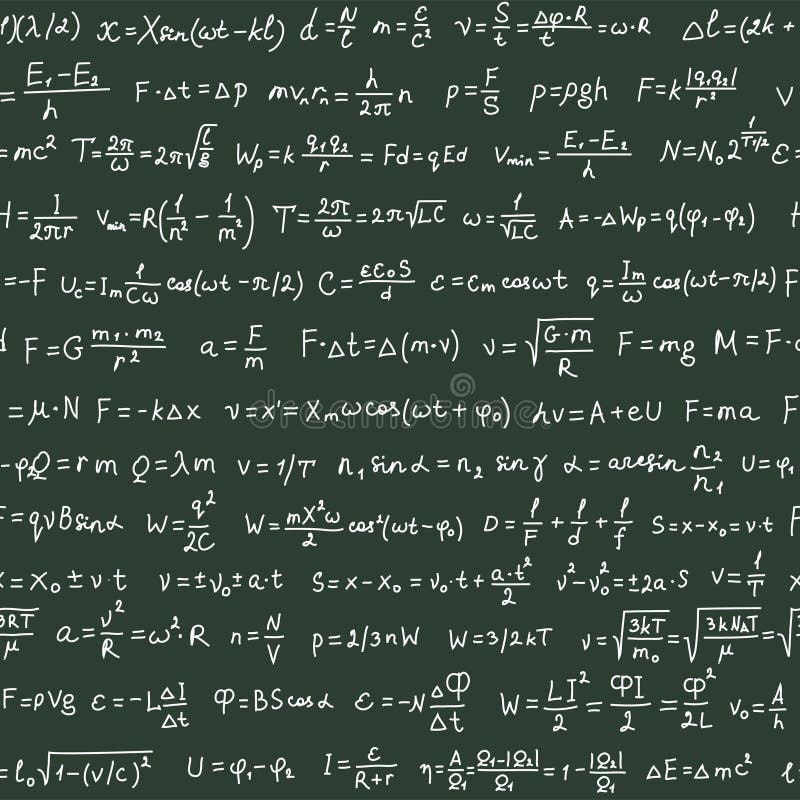 1)(λ/2) x=Xsin(ωt-kl) d=N/l m=ε/c² v=S/t=Δφ·R/t=ω·R Δl=(2k+
=E₁-E₂/h F·Δt=Δp mvₙrₙ=h/2π n p=F/S p=ρgh F=k|q₁q₂|/r² V
=mc² T=2π/ω=2π√l/g Wₚ=k q₁q₂/r=Fd=qEd Vmin=E₁-E₂/h N=N₀2^1/T1/2 ε=
H=I/2πr Vmin=R(1/n²-1/m²) T=2π/ω=2π√LC ω=1/√LC A=-ΔWₚ=q(φ₁-φ₂)
=-F U꜀=Iₘ1/Cω cos(ωt-π/2) C=εε₀S/d ε=εₘcosωt q=Iₘ/ω cos(ωt-π/2) F
F=G m₁·m₂/r² a=F/m F·Δt=Δ(m·v) v=√G·m/R F=mg M=F·
=μ·N F=-kΔx v=x'=Xₘωcos(ωt+φ₀) hν=A+eU F=ma F
-φ₂ Q=rm Q=λm ν=1/T n₁sinα=n₂sinγ α=arcsin n₂/n₁ U=φ₁
F=qvBsinα W=q²/2C W=mX²ω/2 cos²(ωt-φ₀) D=1/F+1/d+1/f S=x-x₀=v·t F
x=x₀±v·t v=±v₀±a·t S=x-x₀=v₀·t+a·t²/2 v²-v₀²=±2a·S V=1/T x
3RT/μ a=v²/R=ω²·R n=N/V p=2/3nW W=3/2kT v=√3kT/m₀=√3kNAT/μ=√3
F=ρVg ε=-LΔI/Δt Φ=BScosα ε=-NΔΦ/Δt W=LI²/2=ΦI/2=Φ²/2L ν₀=A/h
=l₀√1-(v/c)² U=φ₁-φ₂ I=ε/R+r η=A/Q₁=Q₁-|Q₂|/Q₁=1-|Q₂|/Q₁ ΔE=Δmc² l=
dreamstime